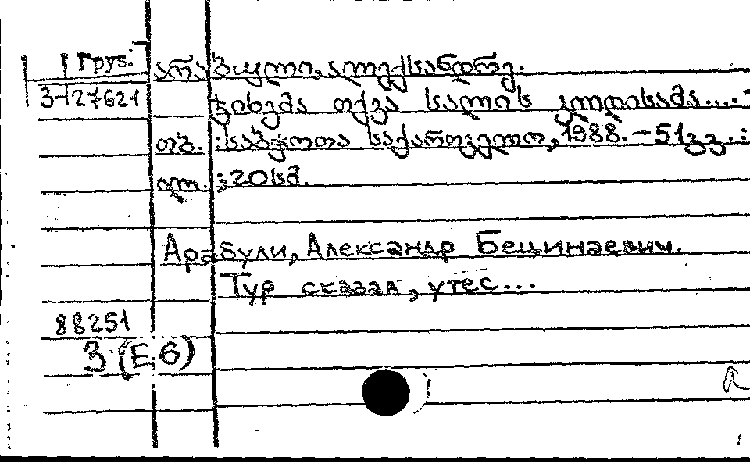 Груз. არაბული, ალექსანდრე.
3-127621 ჯიხვმა თქვა სალის კლდისამა....-
თბ. : საბჭოთა საქართველო, 1988. - 51გვ. :
ილ. ; 20სმ.
Арабули, Александр Бецинаевич.
Тур сказал, утес...
88251
3 (Е.6)